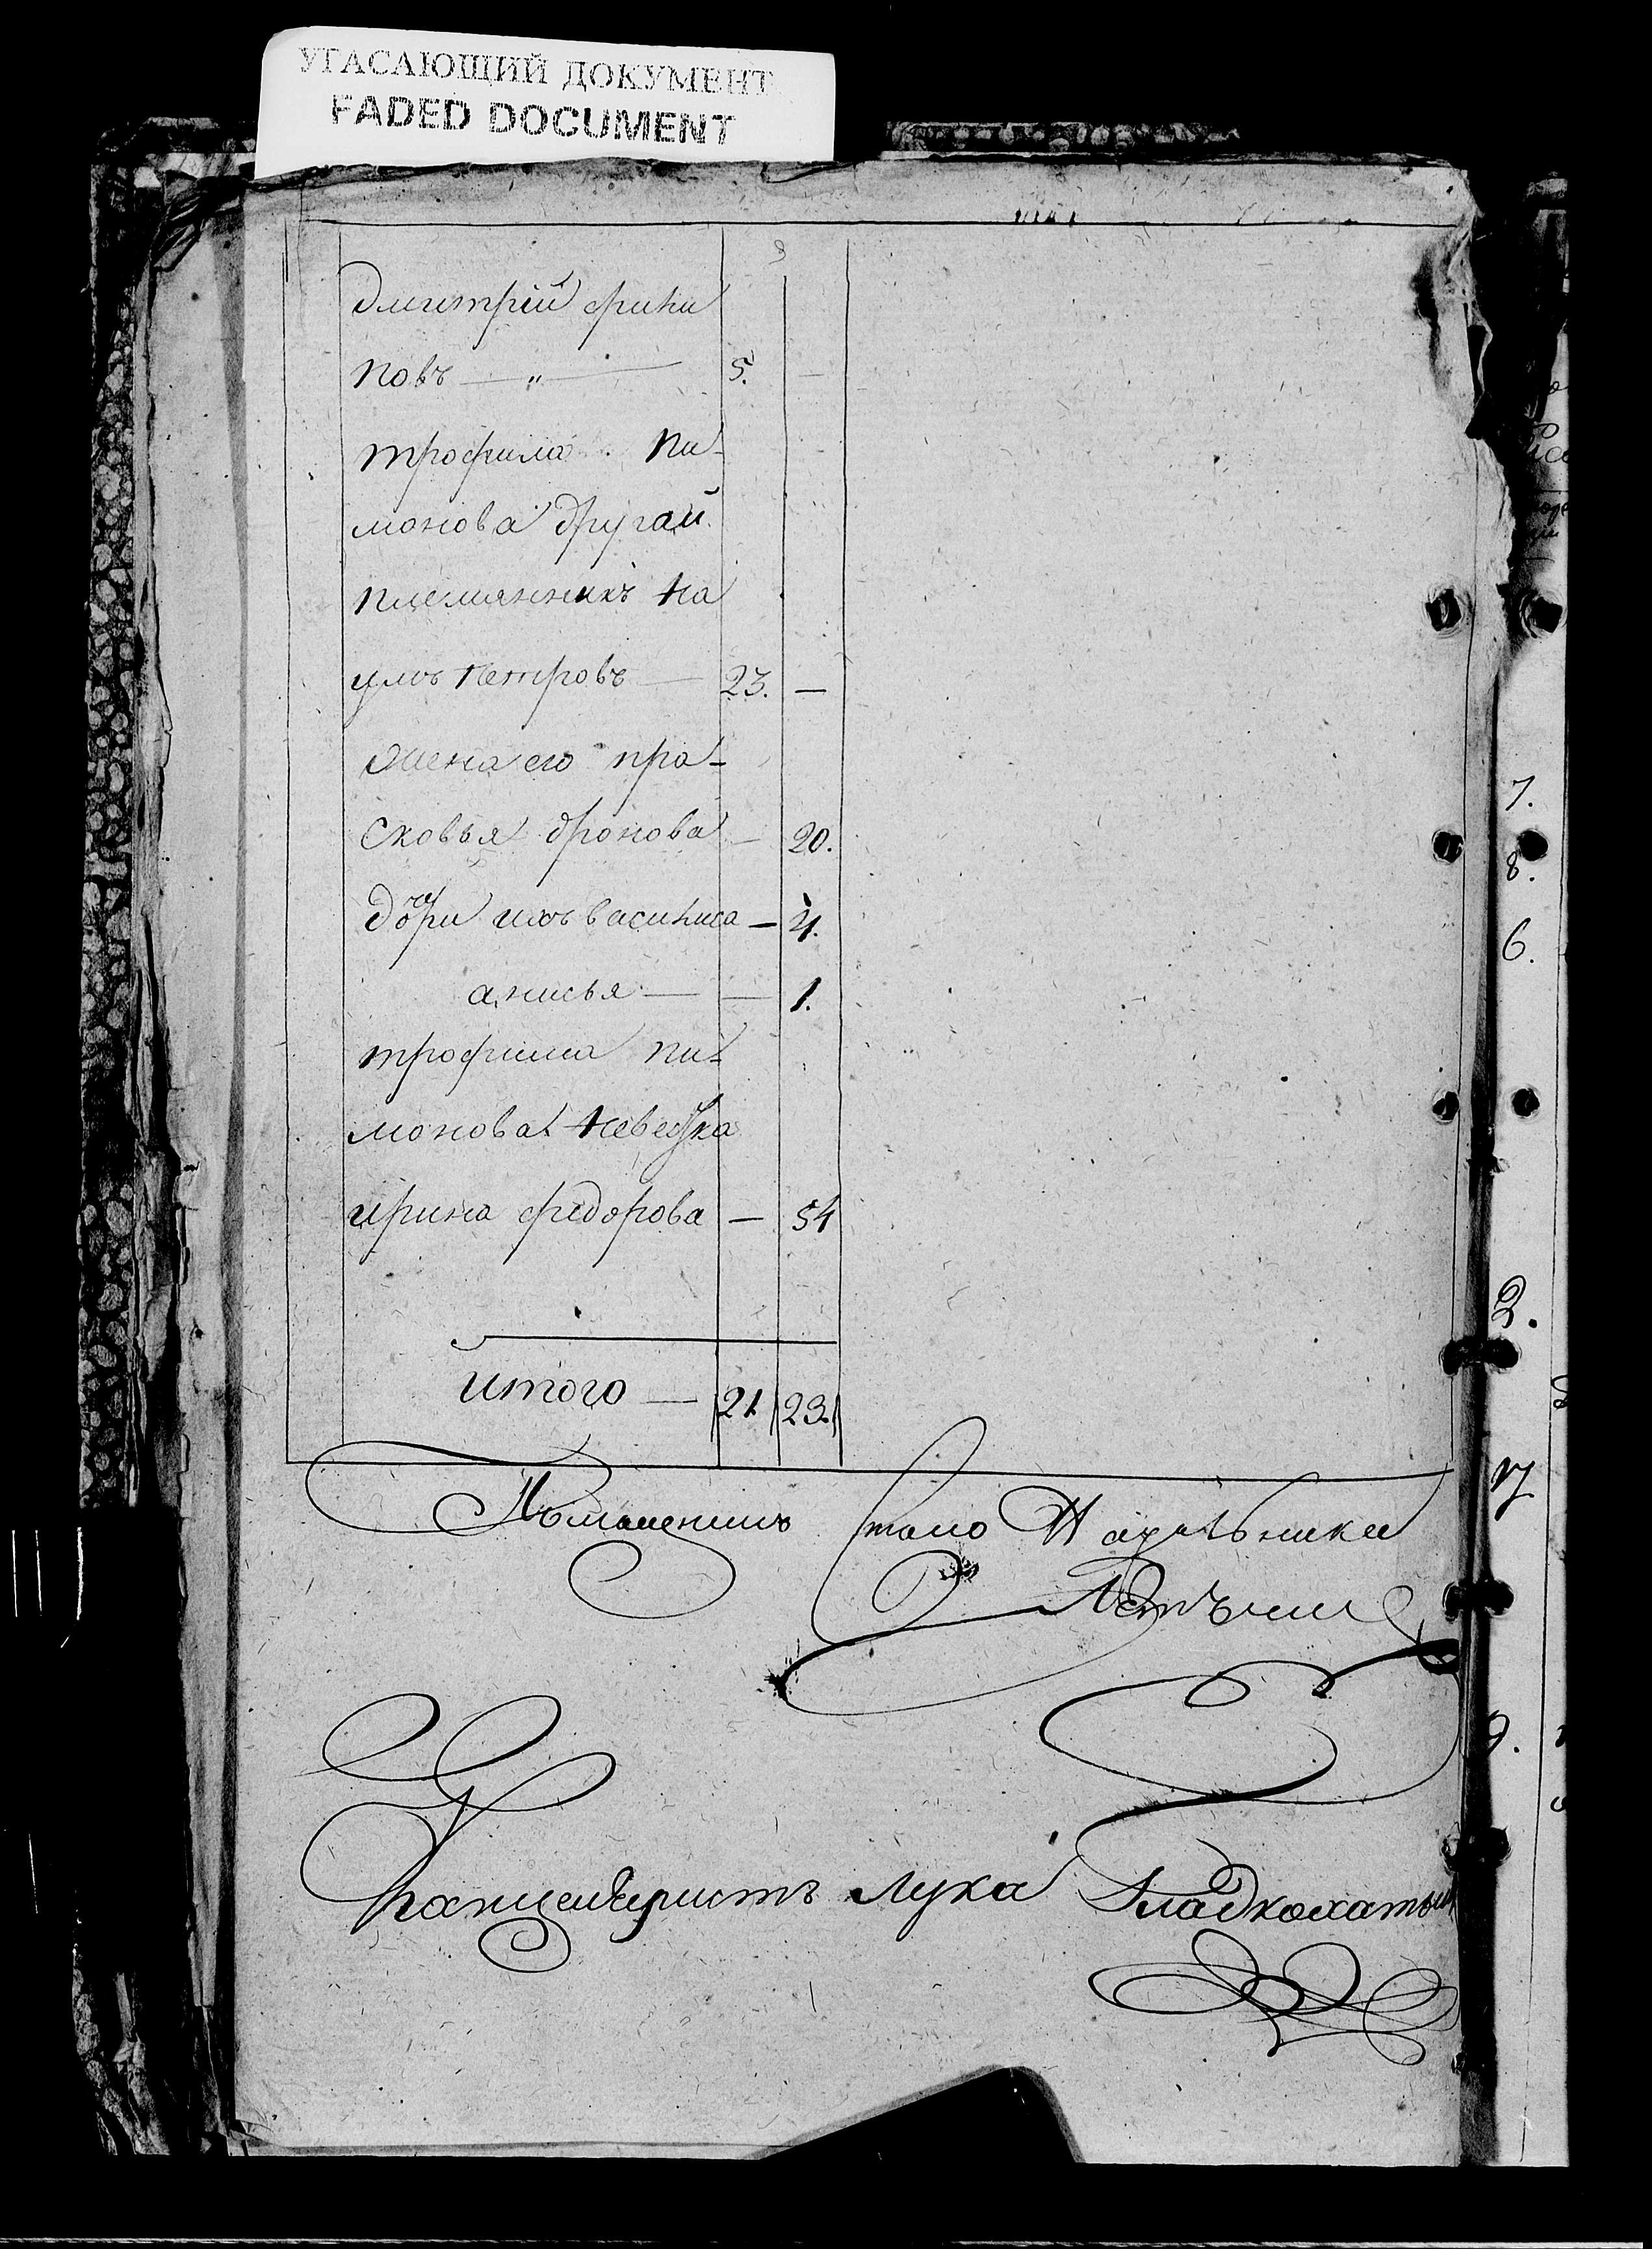 УГАСАЮЩИЙ ДОКУМЕНТ
FADED DOCUMENT
дмитрей фили
повъ — „ — 5. —
трофима пи-
монова другай
племянникъ на
умъ петровъ — 23. —
жена его пра-
сковья дронова — 20.
дочери ихъ василиса — 4.
анисья — — 1.
трофима пи-
монова невестка
ирина федорова — 54
итого — 21. 23.
канцеляристъ Лука Гладкохатый
7.
8.
6.
2.
17
9.